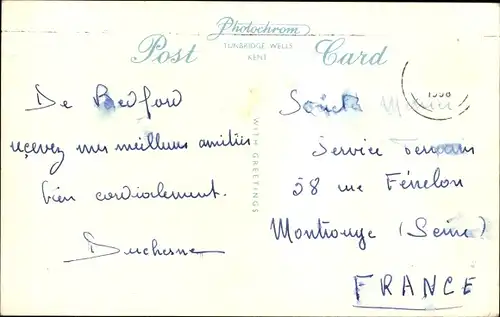 Photochrom
TUNBRIDGE WELLS
KENT
Post Card
1958
De Bedford
reçevez mes meilleurs amitiés
bien cordialement.
Duchesne
WITH GREETINGS
Société
Service Terrain
58 rue Fénelon
Montrouge (Seine)
FRANCE